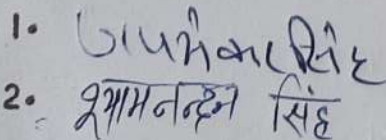 1. जयमंगल सिंह
2. श्यामनन्दन सिंह